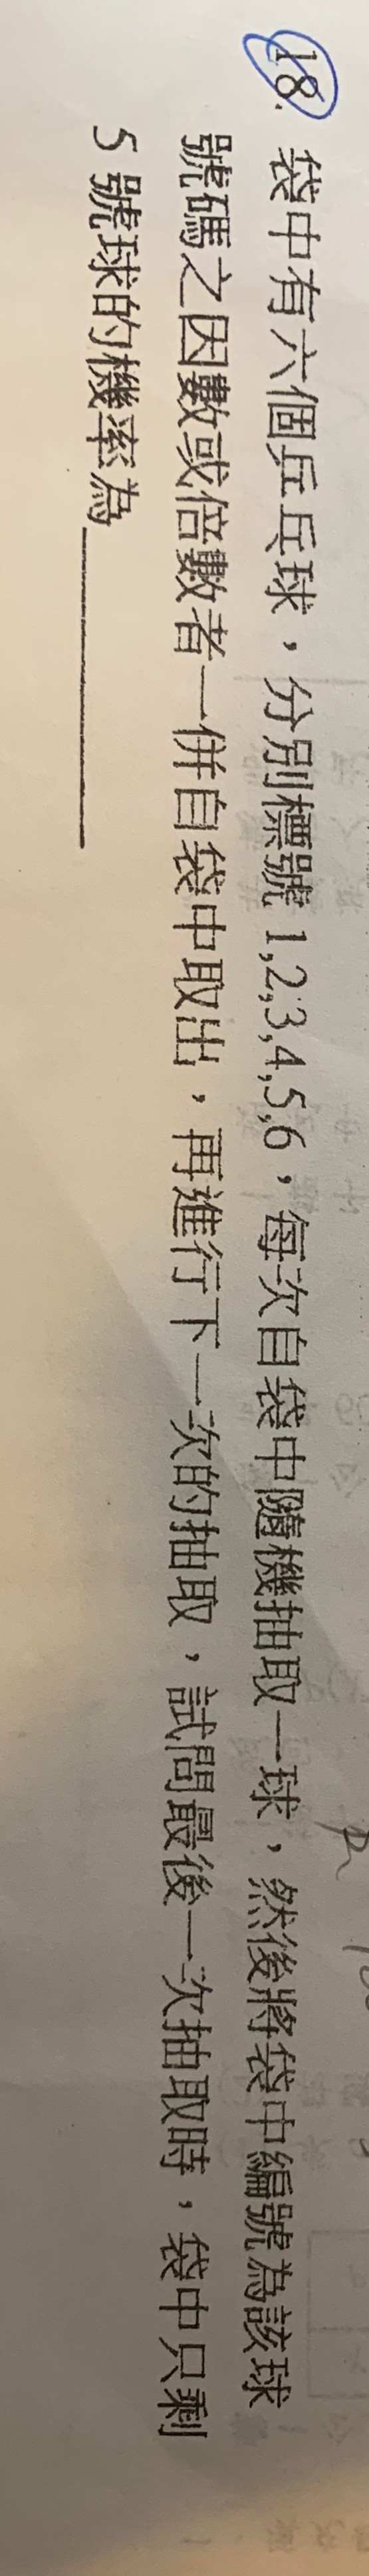 18. 袋中有六個乒乓球，分別標號 1,2,3,4,5,6，每次自袋中隨機抽取一球，然後將袋中編號為該球
號碼之因數或倍數者一併自袋中取出，再進行下一次的抽取，試問最後一次抽取時，袋中只剩
5 號球的機率為